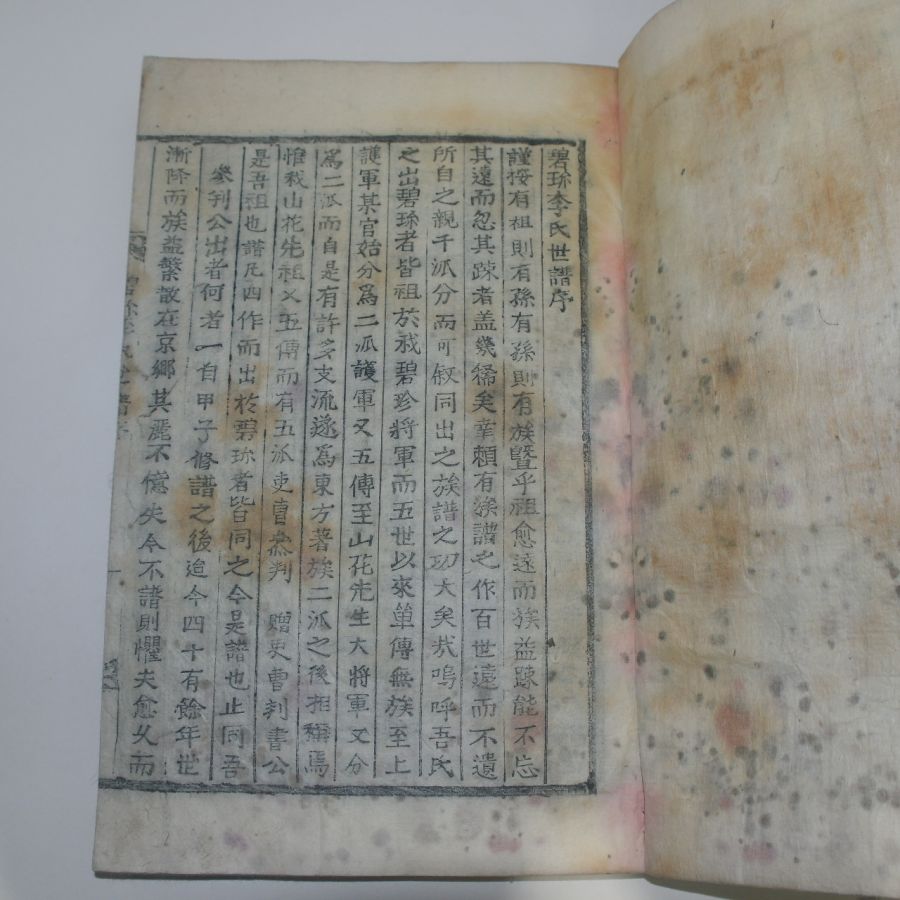 碧珍李氏世譜序
謹按有祖則有孫有孫則有族曁乎祖愈遠而族益踈能不忘
其遠而忽其踈者盖幾稀矣幸賴有族譜之作百世遠而不遺
所自之親千派分而可叙同出之族譜之功大矣哉嗚呼吾氏
之出碧珍者皆祖於我碧珍將軍而五世以來單傳無族至上
護軍某官始分爲二派護軍又五傳至山花先生大將軍又分
爲二派而自是有許多支流遂爲東方著族二派之後相稱焉
惟我山花先祖又五傳而有五派吏曹叅判 贈吏曹判書公
是吾祖也譜凡四作而出於碧珍者皆同之今是譜也止同吾
叅判公出者何者一自甲子修譜之後迨今四十有餘年世
漸降而族益繁散在京鄉其麗不億失今不譜則懼夫愈久而